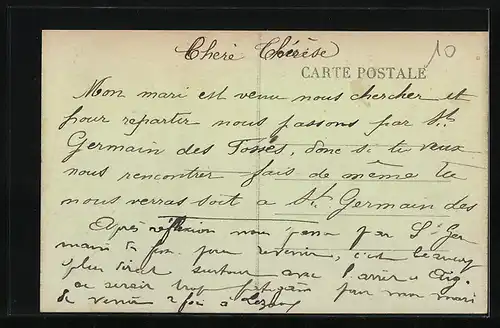 Cheré Thérèse
10
CARTE POSTALE
Mon mari est venu nous chercher et
pour repartir nous passons par St
Germain des Fossés, donc si tu veux
nous rencontrer fais de même tu
nous verras soit a St. Germain des
Après réflexion nous par St Ger
main pour revenir, c'est beaucoup
plus direct surtout avec l'arrêt a
ce serait trop pour mon mari
de venir 2 fois a